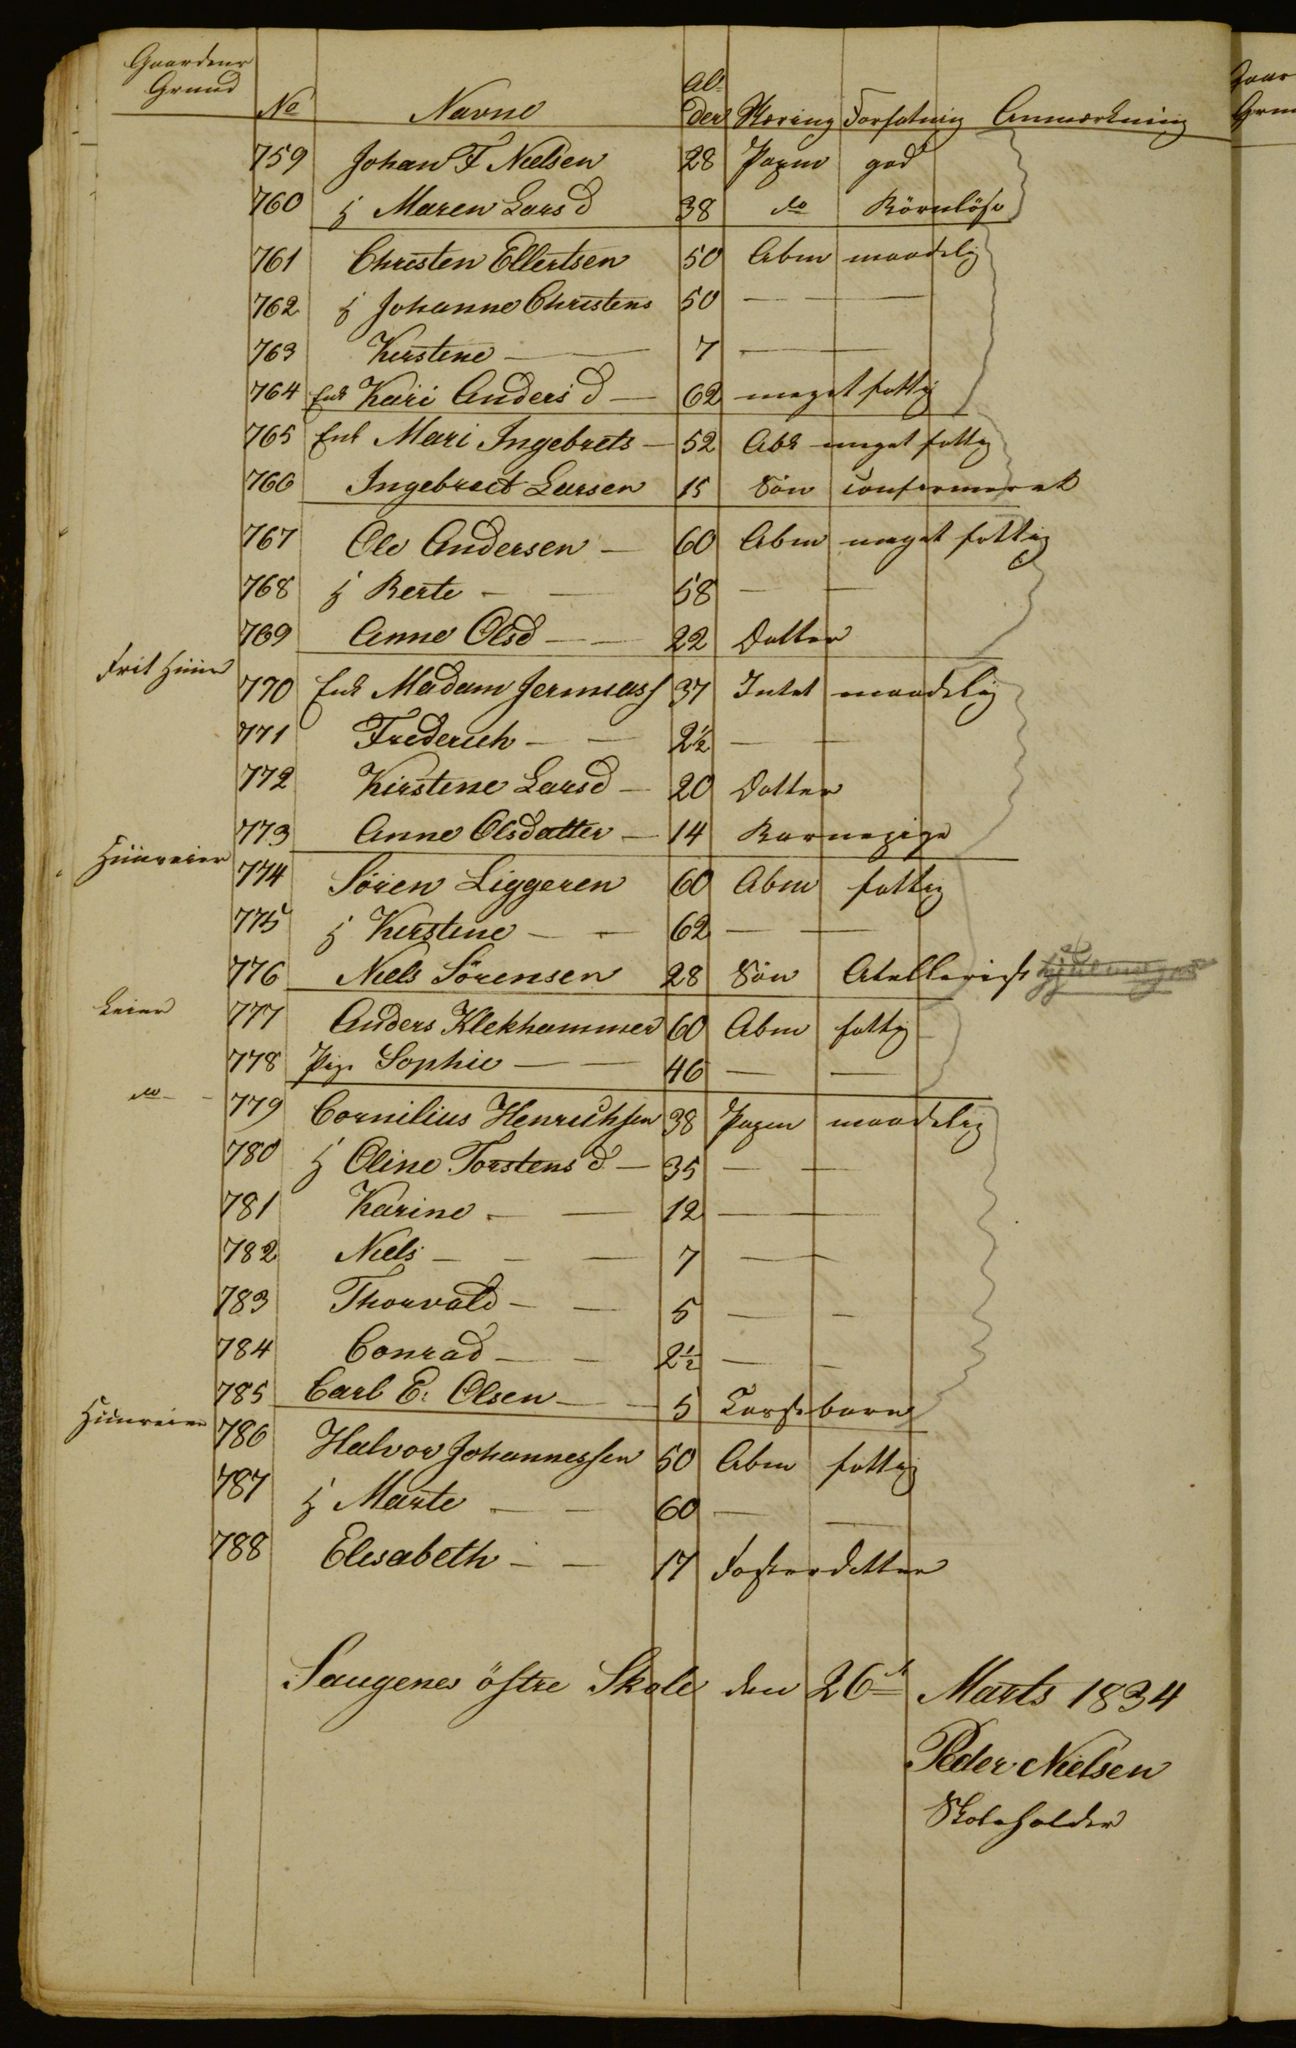 Gaardens Grund No Navne Alder Næring Forfatning Anmærkning
759 Johan F Nielsen 28 god
760 Maren Lars d 38 do Börnlöse
761 Christen Ellertsen 50 Abm maadelig
762 Johanne Christens 50 — —
763 Kirstene — 7 — —
764 Enk Kari Anders d — 62 meget fattig
765 Enk Mari Ingebrets — 52 Abk meget fattig
766 Ingebrect Larsen 15 Sön confirmeret
767 Ole Andersen — 60 Abm meget fattig
768 Berte — — 58 — —
769 Anne Olsd — — 22 Datter
Frit Huus 770 Enk Madam 37 Intet maadelig
771 Frederich — — 2½ — —
772 Kirstene Larsd — 20 Datter
773 Anne Olsdatter — 14 Barnepige
Huuseier 774 Sören Liggeren 60 Abm fattig
775 Kirstene — — 62 — —
776 Niels Sörensen 28 Sön
Leier 777 Anders Klekhammer 60 Abm fattig
778 Pige Sophie — — 46 — —
do — 779 Cornilius Henrichsen 38 maadelig
780 Oline Torstens d — 35 — —
781 Karine — — 12 — —
782 Niels — — 7 — —
783 Thorvald — — 5 — —
784 Conrad — — 2½ — —
785 Carl E: Olsen — — 5
Huuseier 786 Halvor Johannessen 50 Abm fattig
787 Marte — — 60 — —
788 Elisabeth — — 17 Fosterdatter
Saugenes östre Skole den 26de Marts 1834
Peder Nielsen
Skoleholder